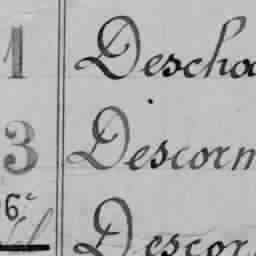 1 Descho
3 Descorn
6.e
Descor